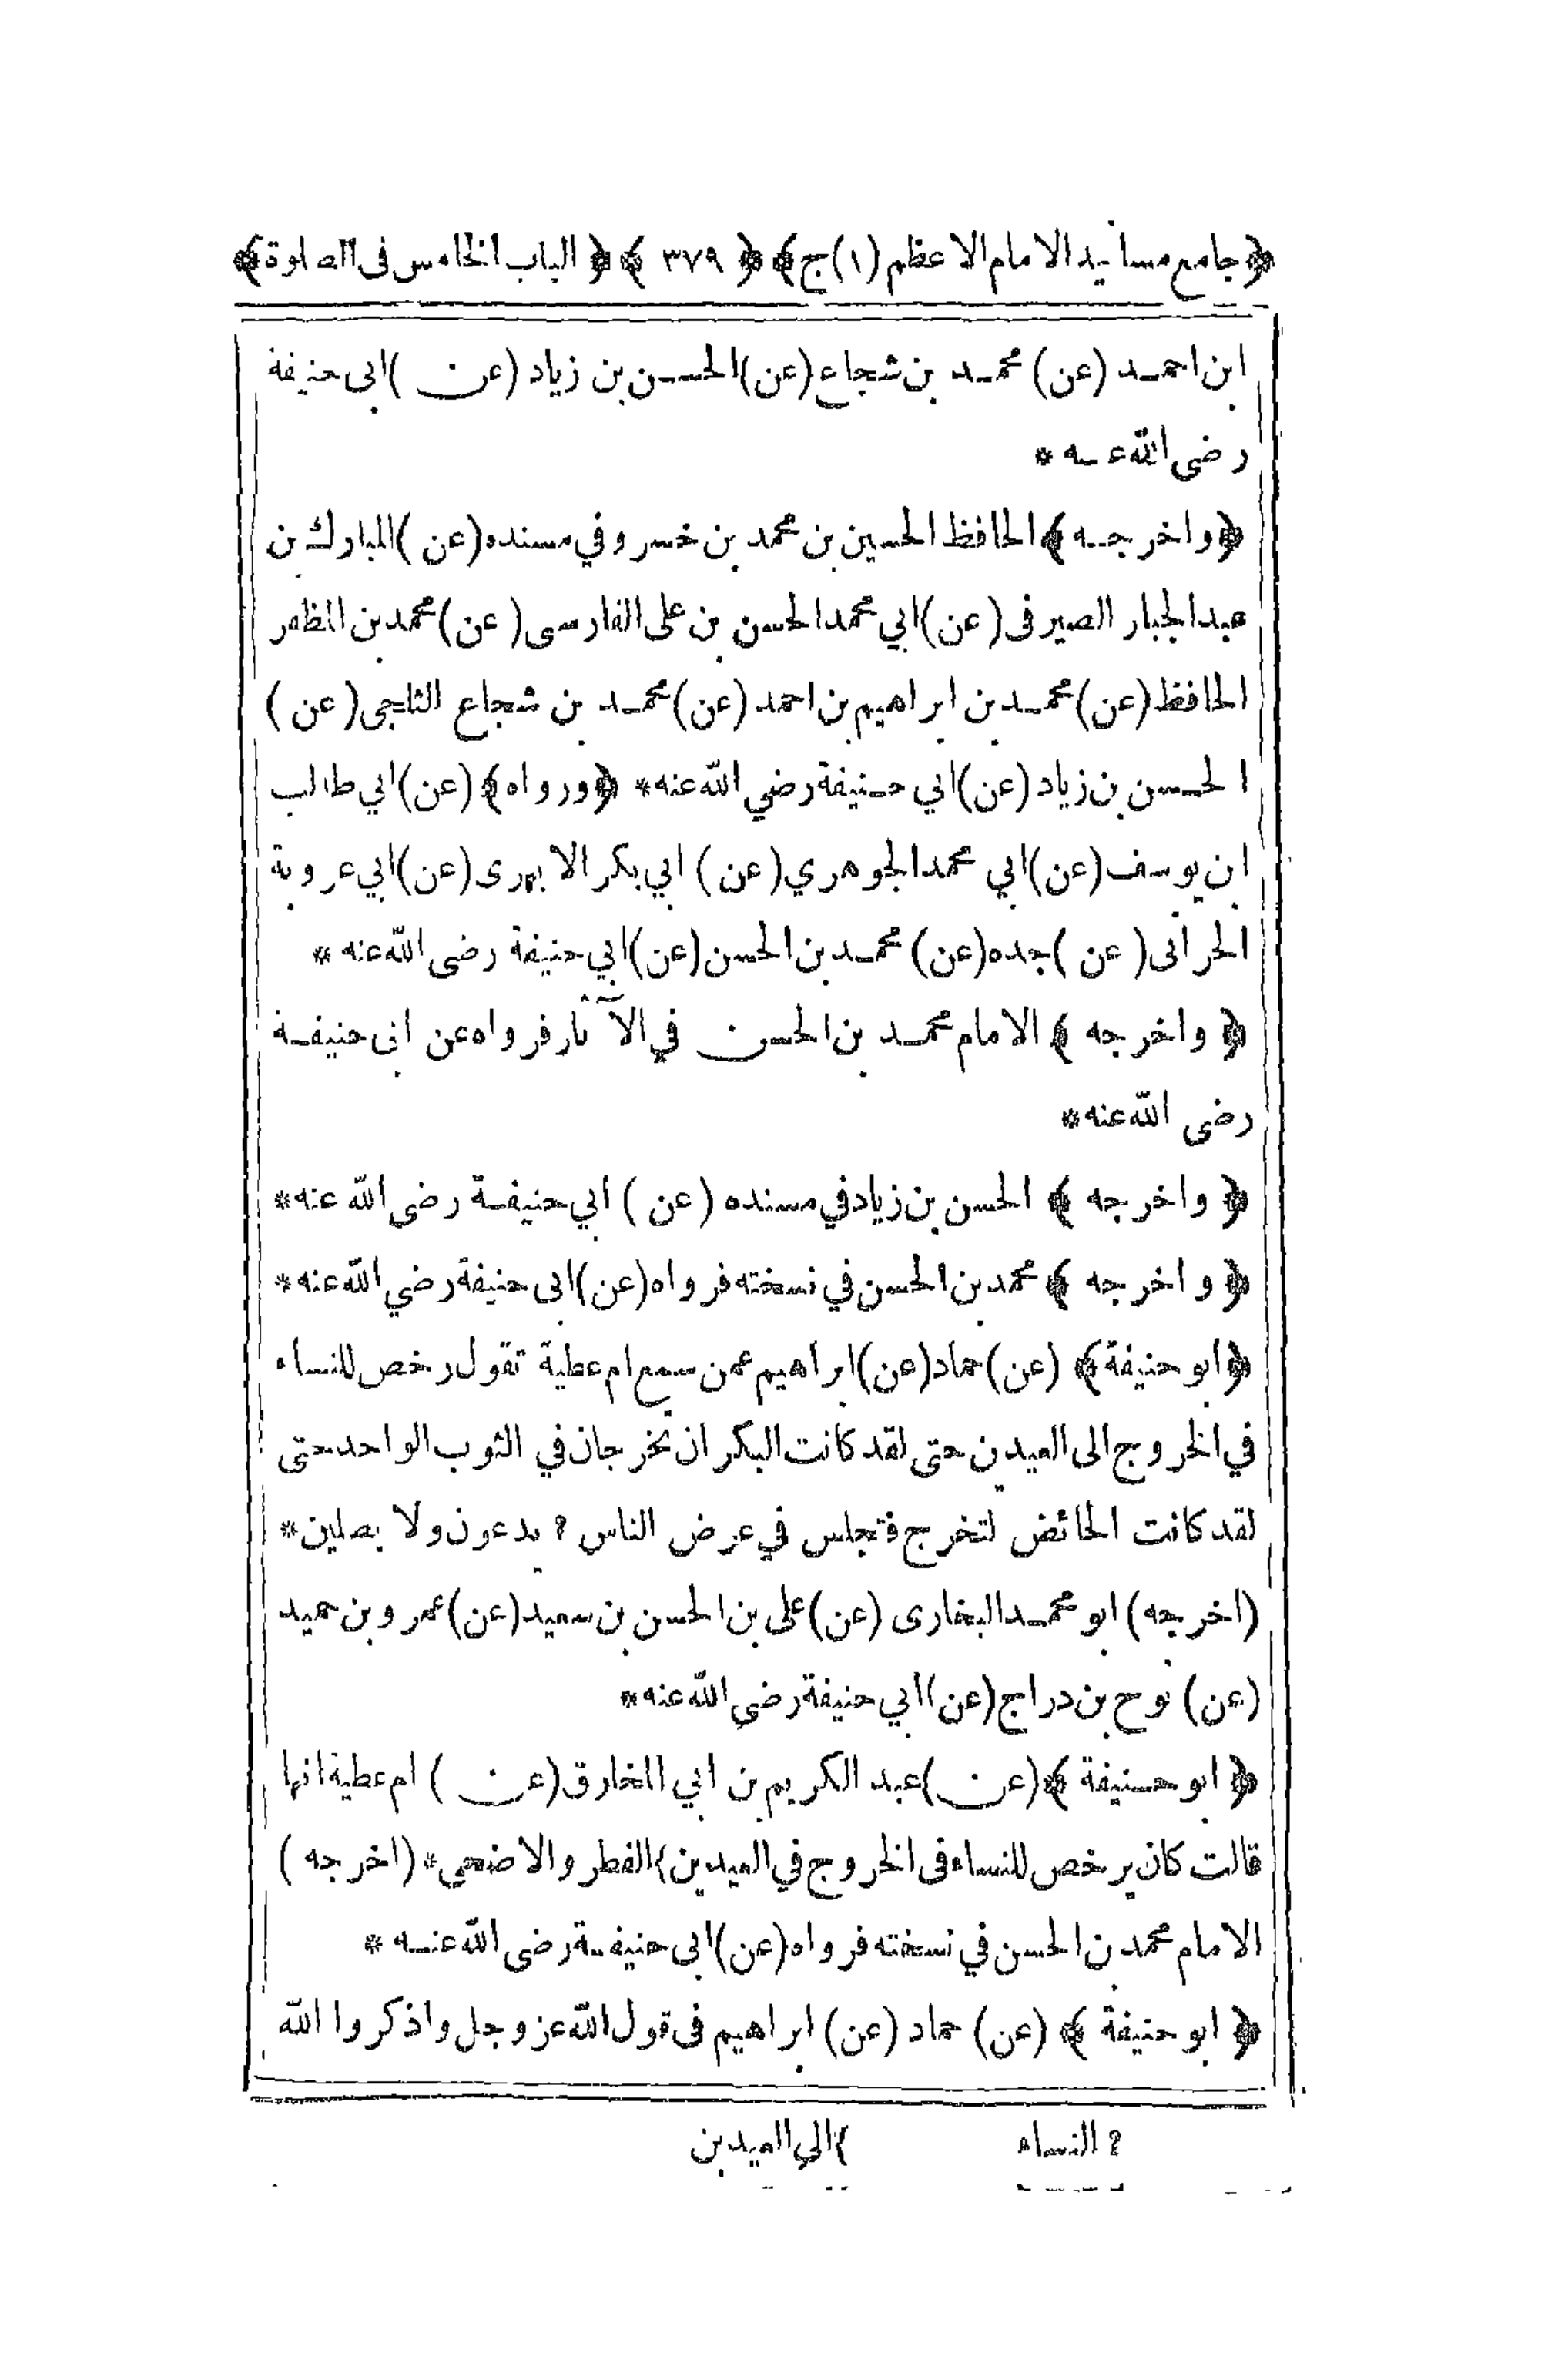 ﴿جامع مسانيد الامام الاعظم (١) ج﴾ ﴿ ٣٧٩ ﴾ ﴿ الباب الخامس فى الصلوة﴾
ابن احمد (عن) محمد بن شجاع (عن) الحسن بن زياد (عن) ابى حنيفة
رضى الله عنه *
﴿واخرجه﴾ الحافظ الحسين بن محمد بن خسرو في مسنده (عن) المبارك بن
عبد الجبار الصيرفى (عن) ابي محمد الحسن بن على الفارسى (عن) محمد بن المظفر
الحافظ (عن) محمد بن ابراهيم بن احمد (عن) محمد بن شجاع الثلجى (عن)
الحسن بن زياد (عن) ابي حنيفة رضي الله عنه * ﴿ورواه﴾ (عن) ابي طالب
ابن يوسف (عن) ابي محمد الجوهري (عن) ابي بكر الابهرى (عن) ابي عروبة
الحرانى (عن) جده (عن) محمد بن الحسن (عن) ابي حنيفة رضى الله عنه *
﴿ واخرجه ﴾ الامام محمد بن الحسن في الآثار فرواه عن ابى حنيفة
رضى الله عنه *
﴿ واخرجه ﴾ الحسن بن زياد في مسنده (عن) ابي حنيفة رضى الله عنه *
﴿ واخرجه ﴾ محمد بن الحسن في نسخته فرواه (عن) ابى حنيفة رضي الله عنه *
﴿ابو حنيفة﴾ (عن) حماد (عن) ابراهيم عمن سمع ام عطية تقول رخص للنساء
في الخروج الى العيدين حتى لقد كانت البكران تخرجان في الثوب الواحد حتى
لقد كانت الحائض لتخرج فتجلس في عرض الناس ٢ يدعون ولا يصلين *
(اخرجه) ابو محمد البخارى (عن) على بن الحسن بن سعيد (عن) عمرو بن حميد
(عن) نوح بن دراج (عن) ابي حنيفة رضي الله عنه *
﴿ ابو حنيفة ﴾ (عن) عبد الكريم بن ابي المخارق (عن) ام عطية انها
قالت كان يرخص للنساء فى الخروج في العيدين) الفطر والاضحي * (اخرجه)
الامام محمد بن الحسن في نسخته فرواه (عن) ابى حنيفة رضى الله عنه *
﴿ ابو حنيفة ﴾ (عن) حماد (عن) ابراهيم فى قول الله عز وجل واذكروا الله
٢ النساء )الي العيدين